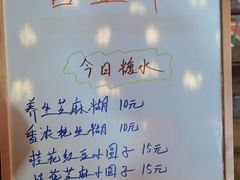 今日糖水
养生芝麻糊 10元
香浓花生糊 10元
桂花红豆小圆子 15元
桂花芝麻小圆子 15元